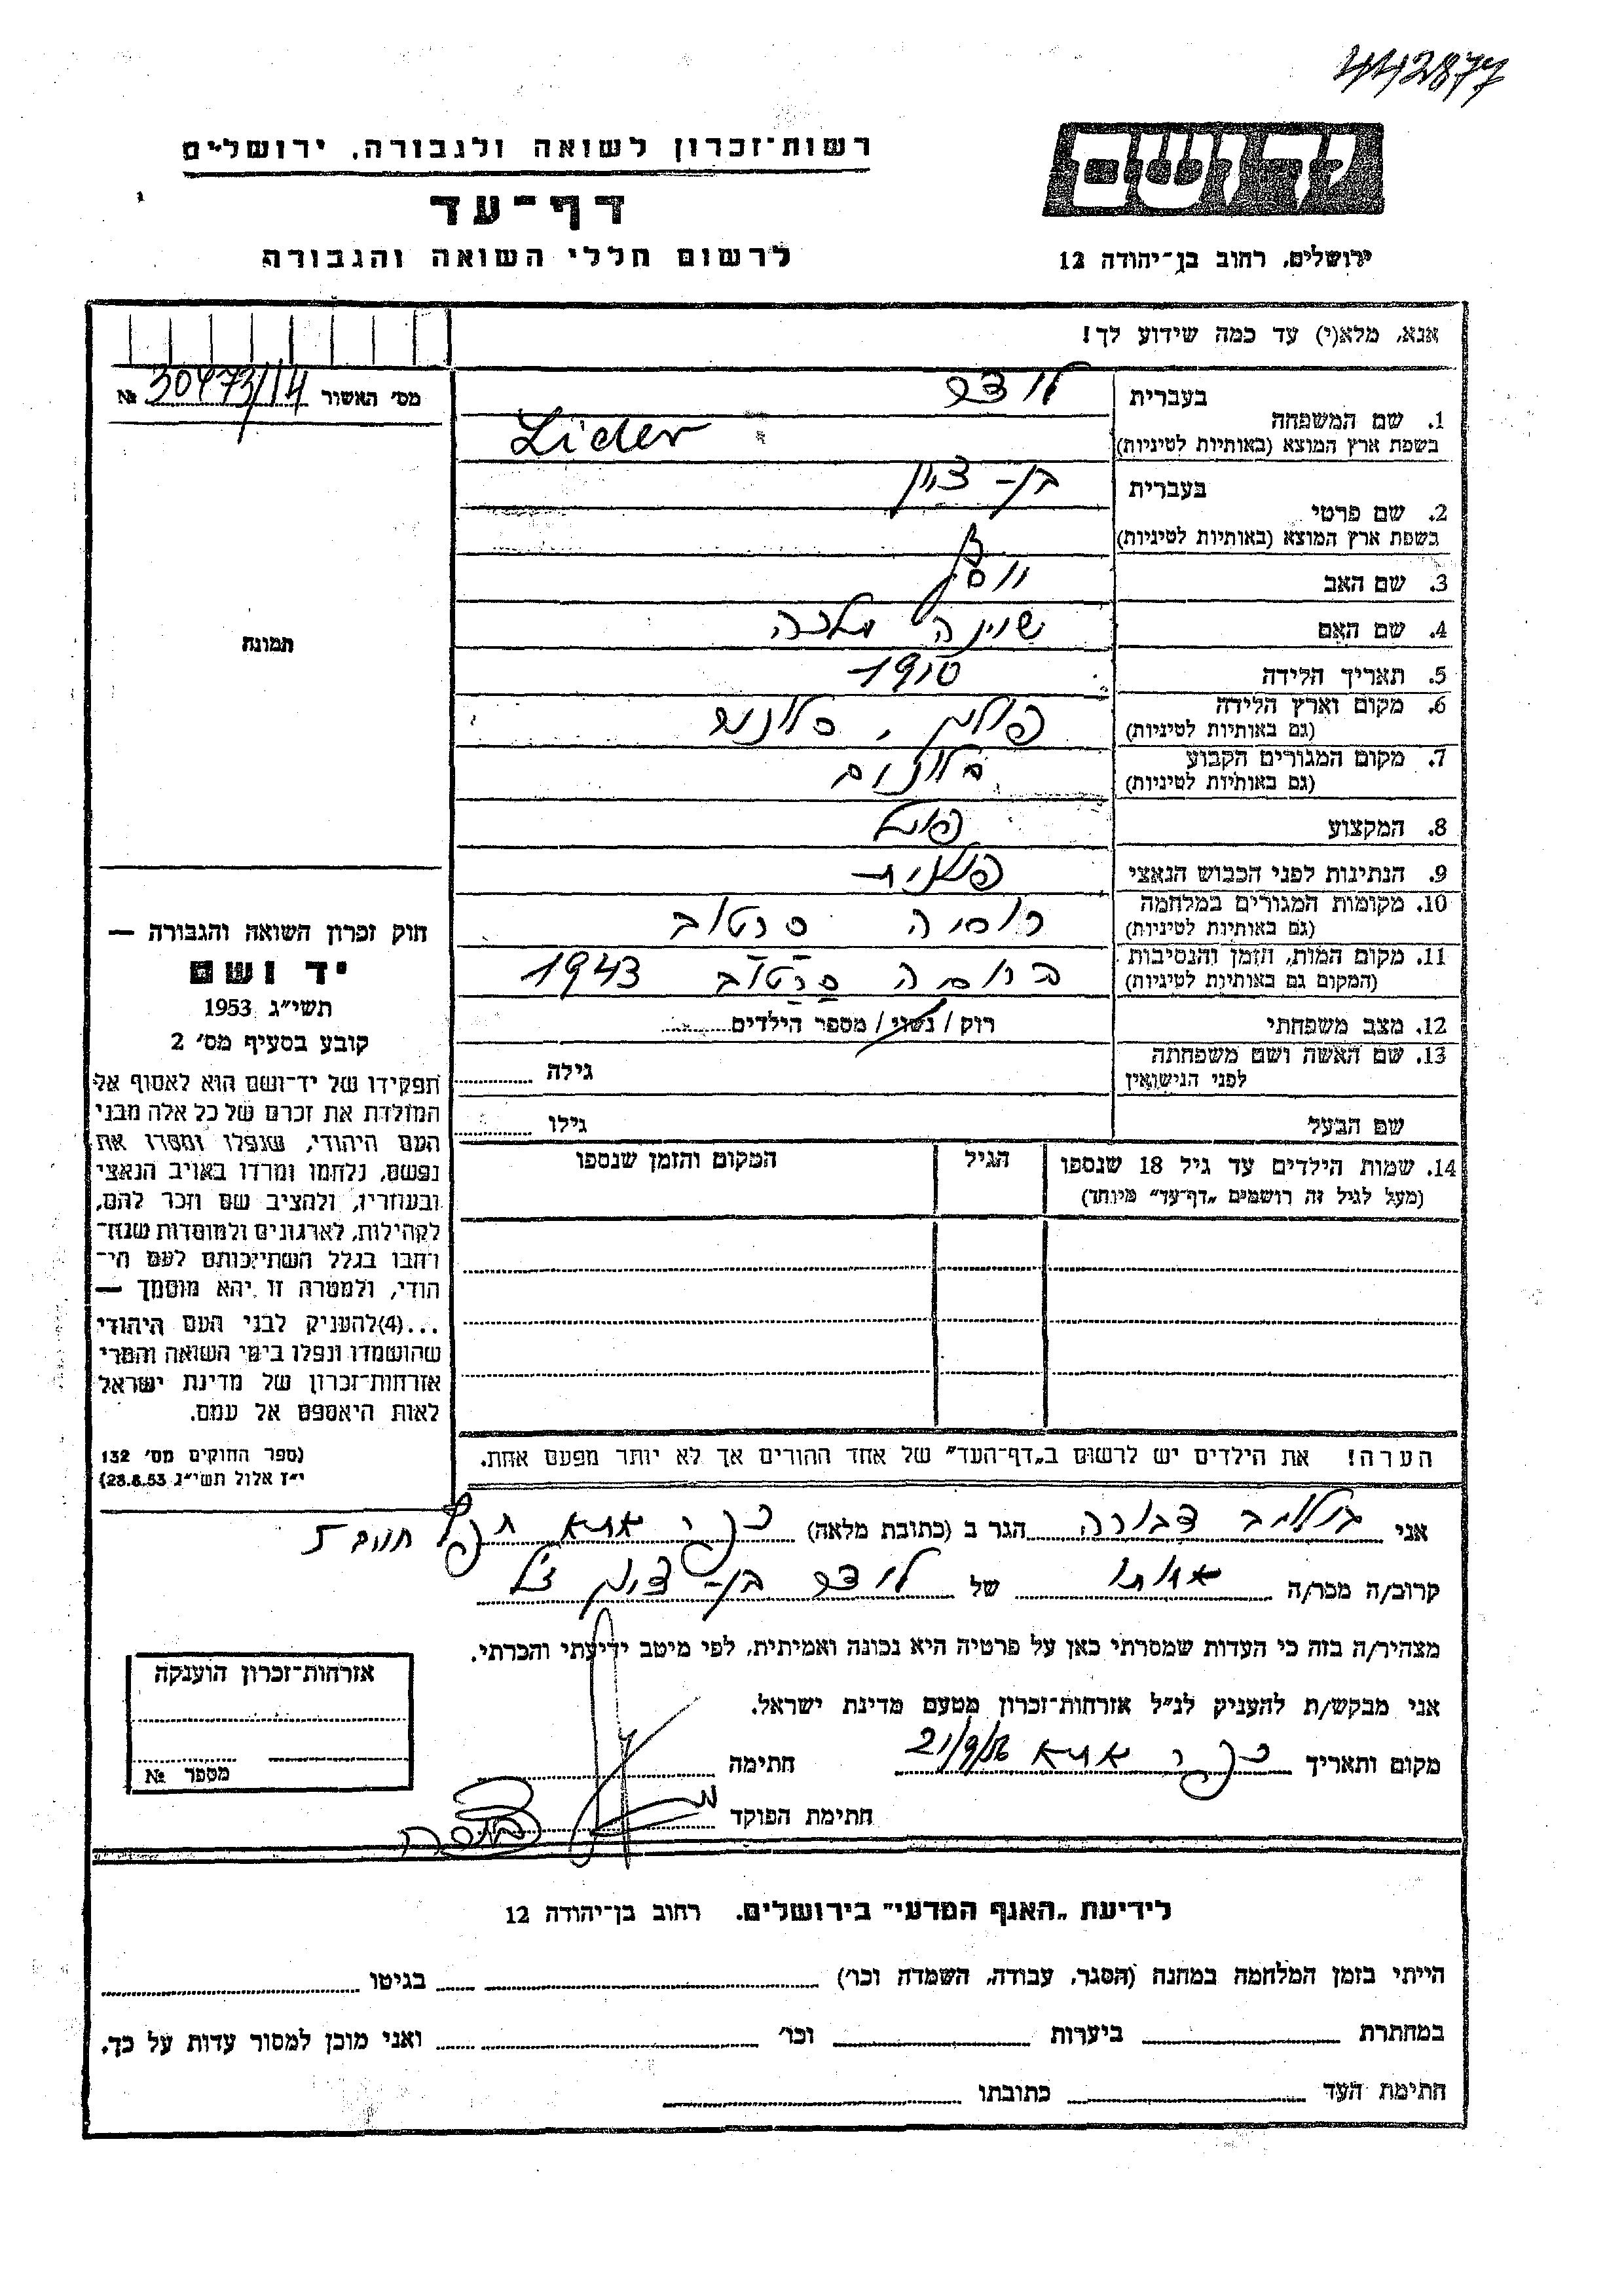 442877
רשות־זכרון לשואה ולגבורה, ירושלים
יד ושם
דף־עד
לרשום חללי השואה והגבורה
ירושלים, רחוב בן־יהודה 12
אנא, מלא(י) עד כמה שידוע לך!
מס׳ האשור № 30473/14
1. שם המשפחה בעברית לידר
בשפת ארץ המוצא (באותיות לטיניות) Lider
2. שם פרטי בעברית בן-ציון
בשפת ארץ המוצא (באותיות לטיניות)
3. שם האב יוסף
4. שם האם שיינה מלכה
5. תאריך הלידה 1910
6. מקום וארץ הלידה (גם באותיות לטיניות) פולין,
7. מקום המגורים הקבוע (גם באותיות לטיניות)
8. המקצוע פועל
9. הנתינות לפני הכבוש הנאצי פולנית
10. מקומות המגורים במלחמה (גם באותיות לטיניות) רוסיה סרטוב
11. מקום המות, הזמן והנסיבות (המקום גם באותיות לטיניות) רוסיה סרטוב 1943
12. מצב משפחתי רוק / נשוי / מספר הילדים
13. שם האשה ושם משפחתה לפני הנישואין גילה
שם הבעל גילו
14. שמות הילדים עד גיל 18 שנספו הגיל המקום והזמן שנספו
(מעל לגיל זה רושמים „דף־עד” מיוחד)
תמונה
חוק זכרון השואה והגבורה —
יד ושם
תשי״ג 1953
קובע בסעיף מס׳ 2
תפקידו של יד־ושם הוא לאסוף אל
המולדת את זכרם של כל אלה מבני
העם היהודי, שנפלו ומסרו את
נפשם, נלחמו ומרדו באויב הנאצי
ובעוזריו, ולהציב שם וזכר להם,
לקהילות, לארגונים ולמוסדות שנח־
רבו בגלל השתייכותם לעם הי־
הודי, ולמטרה זו יהא מוסמך —
...(4)להעניק לבני העם היהודי
שהושמדו ונפלו בימי השואה והמרי
אזרחות־זכרון של מדינת ישראל
לאות היאספם אל עמם.
(ספר החוקים מס׳ 132
י״ז אלול תשי״ג 28.8.53)
הערה! את הילדים יש לרשום ב„דף־העד” של אחד ההורים אך לא יותר מפעם אחת.
אני דבורה הגר ב (כתובת מלאה) כפר אתא
קרוב/ה מכר/ה אחותו של לידר בן-ציון ז״ל
מצהיר/ה בזה כי העדות שמסרתי כאן על פרטיה היא נכונה ואמיתית, לפי מיטב ידיעתי והכרתי.
אני מבקש/ת להעניק לנ״ל אזרחות־זכרון מטעם מדינת ישראל.
מקום ותאריך כפר אתא 21/9/56 חתימה
חתימת הפוקד
אזרחות־זכרון הוענקה
מספר №
לידיעת „האגף המדעי” בירושלים. רחוב בן־יהודה 12
הייתי בזמן המלחמה במחנה (הסגר, עבודה, השמדה וכו׳) בגיטו
במחתרת ביערות וכו׳ ואני מוכן למסור עדות על כך.
חתימת העד כתובתו